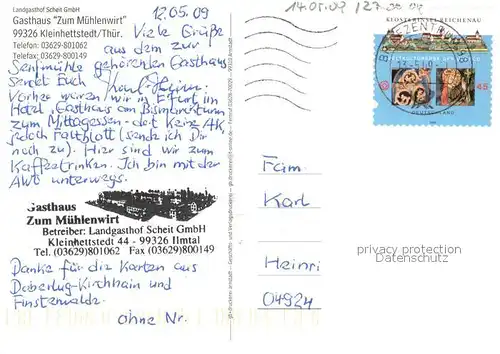 Landgasthof Scheit GmbH
Gasthaus "Zum Mühlenwirt"
99326 Kleinhettstedt/Thür.
Telefon: 03629-801062
Telefax: 03629/800149
12.05.09
Viele Grüße
aus dem zur
Senfmühle gehörenden Gasthaus
sendet Euch Karl-Heinz.
Vorher waren wir in Erfurt im
Hotel, Gasthaus am Bismarckturm
zum Mittagessen - dort keine AK,
jedoch Faltblatt (sende ich Dir
noch zu). Hier sind wir zum
Kaffeetrinken. Ich bin mit der
AWO unterwegs.
Gasthaus
Zum Mühlenwirt
Betreiber: Landgasthof Scheit GmbH
Kleinhettstedt 44 - 99326 Ilmtal
Tel. (03629)801062 Fax (03629)800149
Danke für die Karten aus
Doberlug-Kirchhain und
Finsterwalde.
ohne Nr.
14.05.09
KLOSTERINSEL REICHENAU
BRIEFZENTRUM
45
DEUTSCHLAND
Fam
Karl
Heinri
04924
privacy protection
Datenschutz